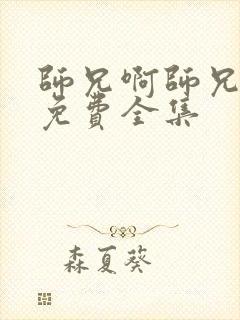 師兄啊師兄
免費全集
森夏葵